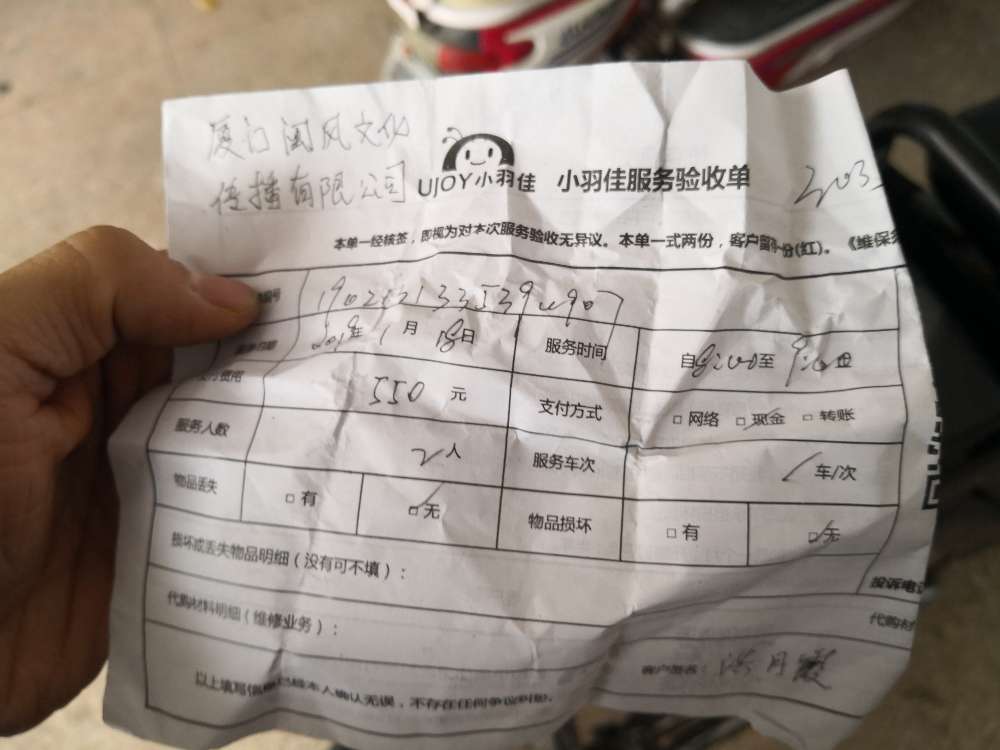 厦门闽风文化
传播有限公司
UJOY小羽佳 小羽佳服务验收单
本单一经核签，即视为对本次服务验收无异议。本单一式两份，客户留存一份(红)。《维保
编号
2019年1月18日 服务时间 自8:00至9:00止
费用 550元 支付方式 □网络 □现金 □转账
服务人数 2人 服务车次 车/次
物品丢失 □有 □无 物品损坏 □有 □无
损坏或丢失物品明细（没有可不填）：
投诉电话
代购材料明细（维修业务）：
代购材
客户签名：
以上填写信息已经本人确认无误，不存在任何争议纠纷。